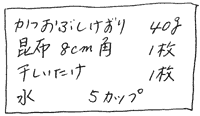 かつおぶしけずり 40g
昆布 8cm角 1枚
干しいたけ 1枚
水 5カップ